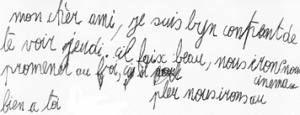 mon cher ami, je suis byn content de
te voir jeudi, il faix beau, nous irons nous
promener au il
cinema
bien a toi pler nous irons au